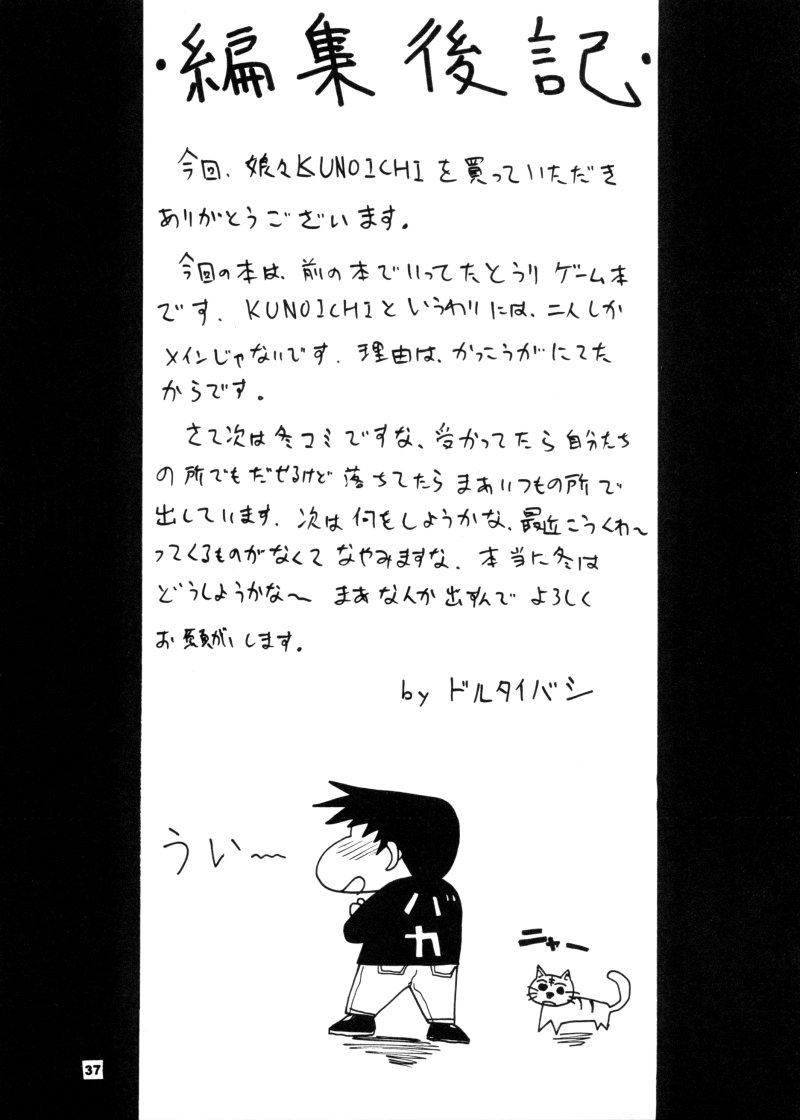 ・編集後記・
今回、娘々KUNOICHIを買っていただき
ありがとうございます。
今回の本は、前の本でいってたとうり ゲーム本
です、KUNOICHIというわりには、二人しか
メインじゃないです、理由は、かっこうがにてた
からです。
さて次は冬コミですな、受かってたら自分たち
の所でもだせるけど落ちてたらまあいつもの所で
出しています、次は何をしようかな、最近こうくわ〜
ってくるものがなくてなやみますな、本当に冬は
どうしようかな〜 まあなんか出すんで よろしく
お願がいします。
by ドルタイバシ
うい〜
バカ
ニャー
37